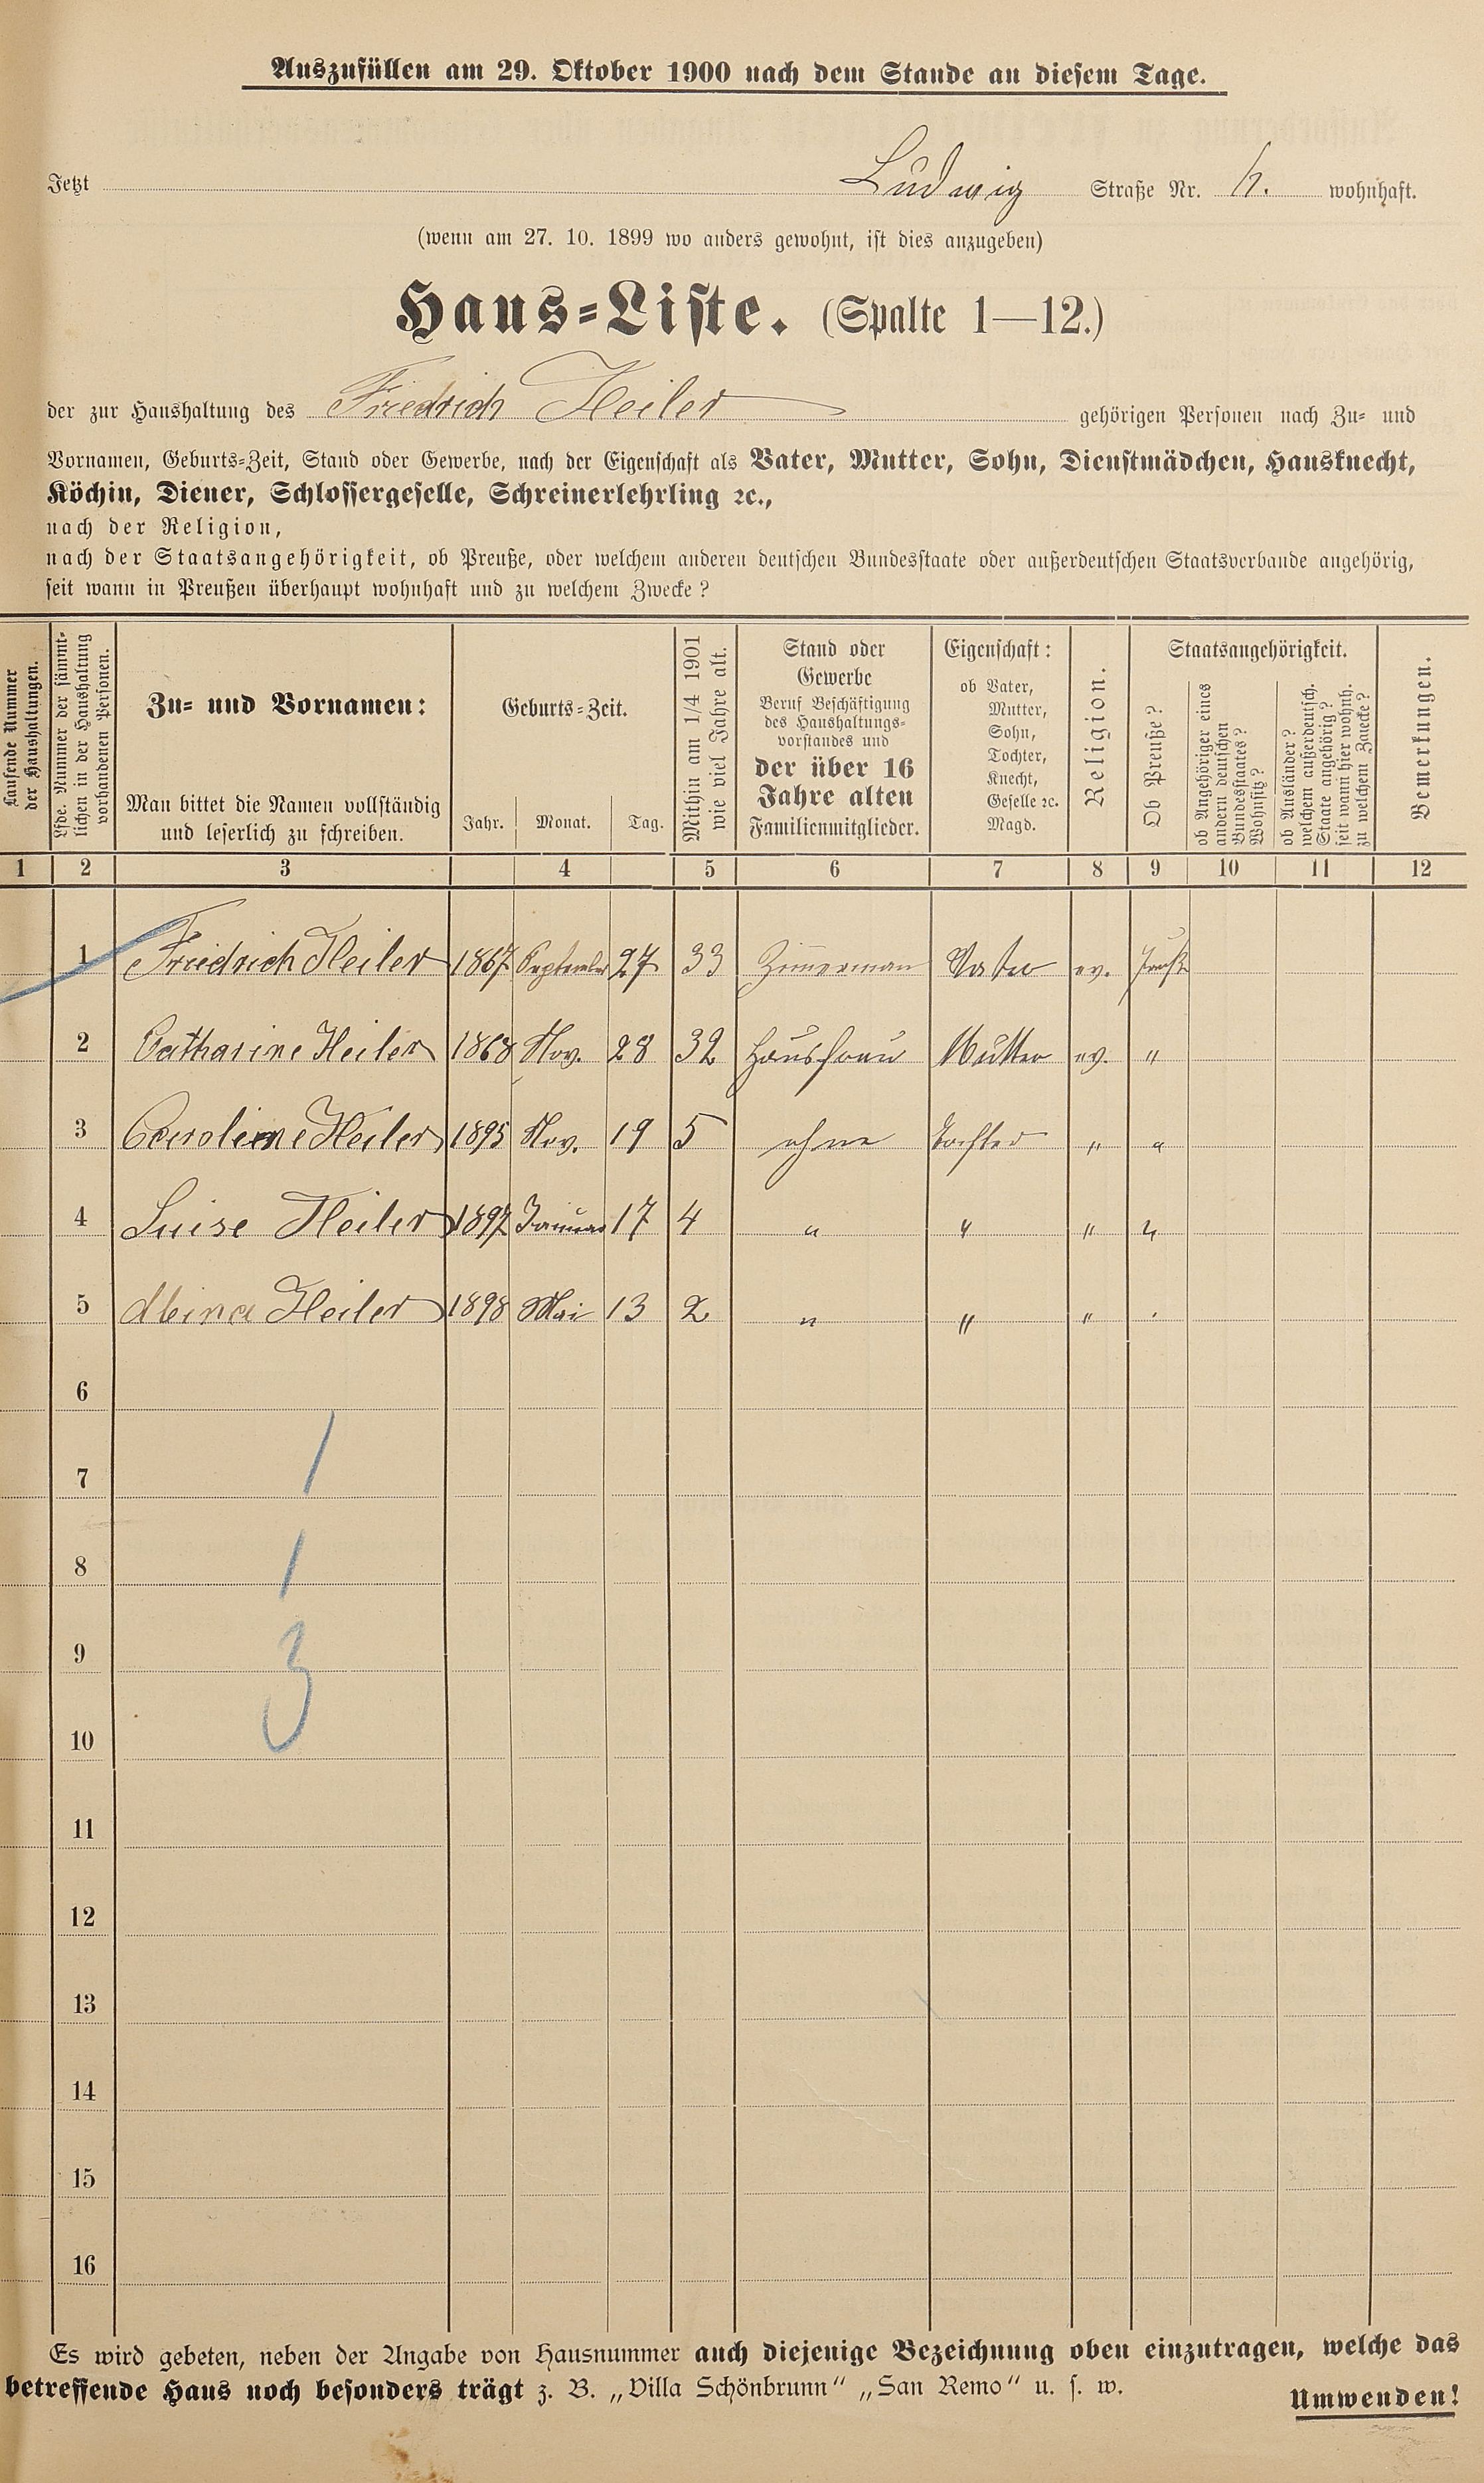 Auszufüllen am 29. Oktober 1900 nach dem Stande an diesem Tage.
Jetzt Ludwig Straße Nr. 6. wohnhaft.
(wenn am 27. 10. 1899 wo anders gewohnt, ist dies anzugeben)
Haus-Liste. (Spalte 1—12.)
der zur Haushaltung des Friedrich Heiler gehörigen Personen nach Zu- und
Vornamen, Geburts-Zeit, Stand oder Gewerbe, nach der Eigenschaft als Vater, Mutter, Sohn, Dienstmädchen, Hausknecht,
Köchin, Diener, Schlossergeselle, Schreinerlehrling ꝛc.,
nach der Religion,
nach der Staatsangehörigkeit, ob Preuße, oder welchem anderen deutschen Bundesstaate oder außerdeutschen Staatsverbande angehörig,
seit wann in Preußen überhaupt wohnhaft und zu welchem Zwecke?
Laufende Nummer
der Haushaltungen.
Lfde. Nummer der sämmt-
lichen in der Haushaltung
vorhandenen Personen.
Zu- und Vornamen:
Man bittet die Namen vollständig
und leserlich zu schreiben.
Geburts-Zeit.
Jahr. Monat. Tag.
Mithin am 1/4 1901
wie viel Jahre alt.
Stand oder
Gewerbe
Beruf Beschäftigung
des Haushaltungs-
vorstandes und
der über 16
Jahre alten
Familienmitglieder.
Eigenschaft:
ob Vater,
Mutter,
Sohn,
Tochter,
Knecht,
Geselle ꝛc.
Magd.
Religion.
Staatsangehörigkeit.
Ob Preuße?
ob Angehöriger eines
andern deutschen
Bundesstaates?
Wohnsitz?
ob Ausländer?
welchem außerdeutsch.
Staate angehörig?
seit wann hier wohnh.
zu welchem Zwecke?
Bemerkungen.
1 2 3 4 5 6 7 8 9 10 11 12
1 Friedrich Heiler 1867 September 27 33 Zimmerman Vater ev. Preuße
2 Catharine Heiler 1868 Nov. 28 32 Hausfrau Mutter ev. "
3 Caroline Heiler 1895 Nov. 19 5 ohne Tochter " "
4 Luise Heiler 1897 Januar 17 4 " " " "
5 Mina Heiler 1898 Mai 13 2 " " " "
6
7 1
8 1
9 3
10
11
12
13
14
15
16
Es wird gebeten, neben der Angabe von Hausnummer auch diejenige Bezeichnung oben einzutragen, welche das
betreffende Haus noch besonders trägt z. B. „Villa Schönbrunn“ „San Remo“ u. s. w.
Umwenden!